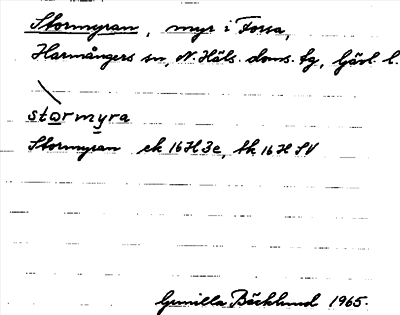 Stormyran, myr i Forsa,
Harmångers sn, N. Häls. doms. tg, Gävl. l.
stormyra
Stormyran ek 16H3e, tk 16H SV
Gunilla Bäcklund 1965.